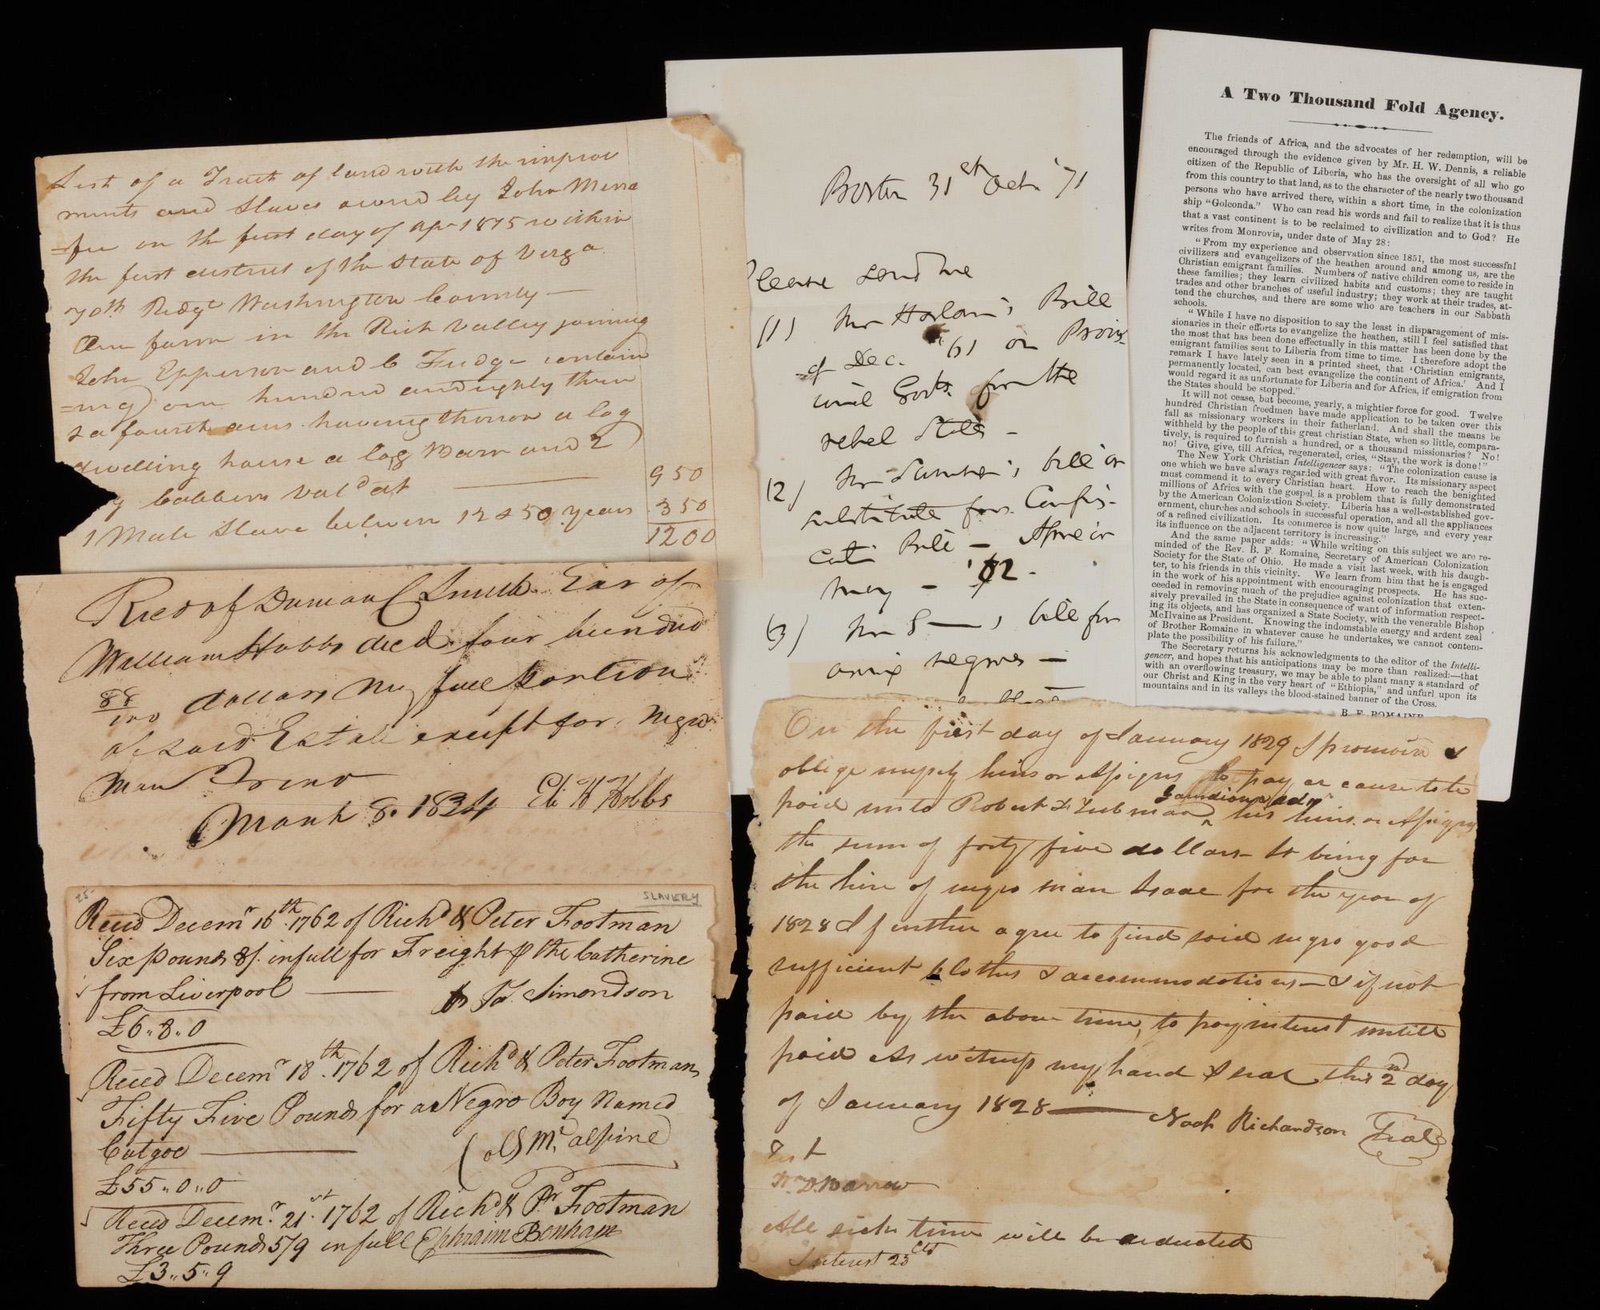 List of a Tract of land with the improv
ments and Slaves owned by John Mena
=fee on the first day of Apr 1815 within
the first district of the State of Virga
70th Regt Washington County —
One farm in the Rich Valley joining
John Epperson and C Fudge contain
=ing) one hundred and eighty three
& a fourth acres having thereon a log
dwelling house a log Barn and 2
Cabbins Val'd at ——— 950
1 Male Slave between 12 & 50 years 350
1200
Recd of Duncan C Smith Exr of
William Hobbs decd four hundred
88/100 dollars my full portion
of said Estate except for Negro
Man
March 8. 1834 Eli H Hobbs
25-
SLAVERY
Recd Decemr 16th 1762 of Richd & Peter Footman
Six pounds 8/. in full for Freight p the Catherine
from Liverpool —— Simondson
£6.. 8.. 0
Recd Decemr 18th 1762 of Richd & Peter Footman
Fifty Five Pounds for a Negro Boy Named
Catgoe —— McAlpine
£55.. 0.. 0
Recd Decemr 21st 1762 of Richd & Pr Footman
Three Pounds 5/9 in full Ephraim Bonham
£3.. 5.. 9
Boston 31st Octr '71
Please send me
(1) Mr Harlan's Bill
of Dec. '61 on Provis
ional Govts for the
rebel States —
(2) Mr Sumner's bill or
substitute for Confis-
catn Bill — April or
May — '62 —
(3) Mr S——'s bill for
arming negroes —
A Two Thousand Fold Agency.
The friends of Africa, and the advocates of her redemption, will be
encouraged through the evidence given by Mr. H. W. Dennis, a reliable
citizen of the Republic of Liberia, who has the oversight of all who go
from this country to that land, as to the character of the nearly two thousand
persons who have arrived there, within a short time, in the colonization
ship "Golconda." Who can read his words and fail to realize that it is thus
that a vast continent is to be reclaimed to civilization and to God? He
writes from Monrovia, under date of May 28:
"From my experience and observation since 1851, the most successful
civilizers and evangelizers of the heathen around and among us, are the
Christian emigrant families. Numbers of native children come to reside in
these families; they learn civilized habits and customs; they are taught
trades and other branches of useful industry; they work at their trades, at-
tend the churches, and there are some who are teachers in our Sabbath
schools.
"While I have no disposition to say the least in disparagement of mis-
sionaries in their efforts to evangelize the heathen, still I feel satisfied that
the most that has been done effectually in this matter has been done by the
emigrant families sent to Liberia from time to time. I therefore adopt the
remark I have lately seen in a printed sheet, that 'Christian emigrants,
permanently located, can best evangelize the continent of Africa.' And I
would regard it as unfortunate for Liberia and for Africa, if emigration from
the States should be stopped."
It will not cease, but become, yearly, a mightier force for good. Twelve
hundred Christian freedmen have made application to be taken over this
fall as missionary workers in their fatherland. And shall the means be
withheld by the people of this great christian State, when so little, compara-
tively, is required to furnish a hundred, or a thousand missionaries? No!
no! Give, give, till Africa, regenerated, cries, "Stay, the work is done!"
The New York Christian Intelligencer says: "The colonization cause is
one which we have always regarded with great favor. Its missionary aspect
must commend it to every Christian heart. How to reach the benighted
millions of Africa with the gospel is a problem that is fully demonstrated
by the American Colonization Society. Liberia has a well-established gov-
ernment, churches and schools in successful operation, and all the appliances
of a refined civilization. Its commerce is now quite large, and every year
its influence on the adjacent territory is increasing."
And the same paper adds: "While writing on this subject we are re-
minded of the Rev. B. F. Romaine, Secretary of American Colonization
Society for the State of Ohio. He made a visit last week, with his daugh-
ter, to his friends in this vicinity. We learn from him that he is engaged
in the work of his appointment with encouraging prospects. He has suc-
ceeded in removing much of the prejudice against colonization that exten-
sively prevailed in the State in consequence of want of information respect-
ing its objects, and has organized a State Society, with the venerable Bishop
McIlvaine as President. Knowing the indomstable energy and ardent zeal
of Brother Romaine in whatever cause he undertakes, we cannot contem-
plate the possibility of his failure."
The Secretary returns his acknowledgments to the editor of the Intelli-
gencer, and hopes that his anticipations may be more than realized:—that
with an overflowing treasury, we may be able to plant many a standard of
our Christ and King in the very heart of "Ethiopia," and unfurl upon its
mountains and in its valleys the blood-stained banner of the Cross.
B. F. ROMAINE
On the first day of January 1829 I promise &
oblige myself heirs or Assigns to pay or cause to be
paid unto Robert F Tubman Guardian & adr his heirs or Assigns
the sum of forty five dollars It being for
the hire of negro man Isaac for the year of
1828 I further agree to find said negro good
sufficient clothes & accommodations — & if not
paid by the above time, to pay interest untill
paid As witness my hand & seal this 2nd day
of January 1828 —— Noah Richardson Seal
Test
Wm D. Barrow
All sick time will be deducted
Interest 25 cts